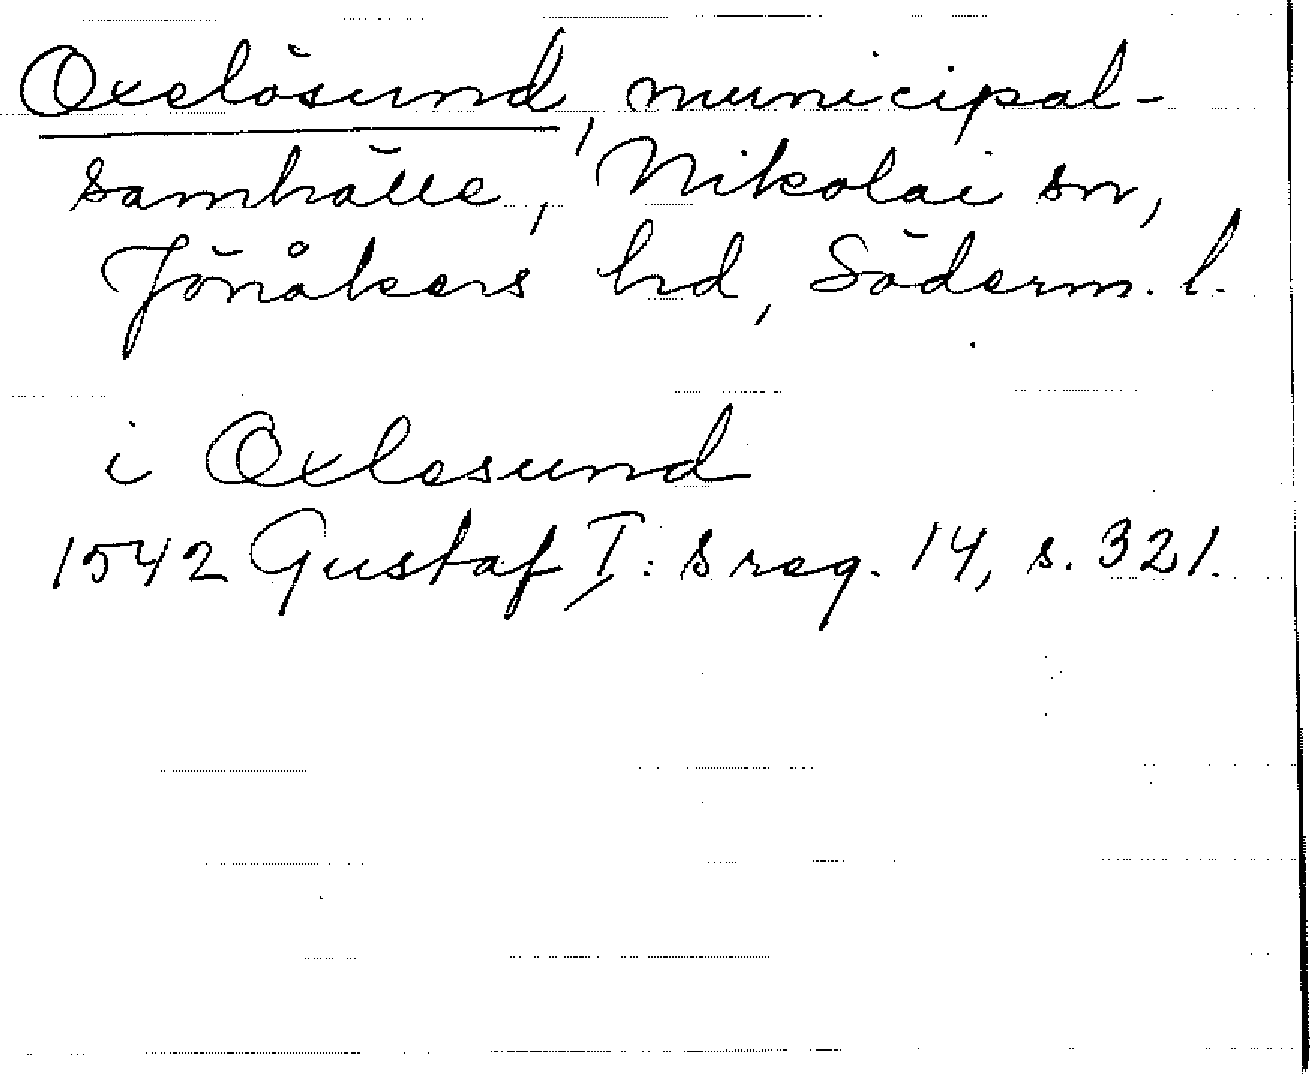 Oxelösund, municipal-
samhälle, Nikolai sn,
Jönåkers hd, Söderm. l.
i Oxlesund
1542 Gustaf I: s reg. 14, s. 321.